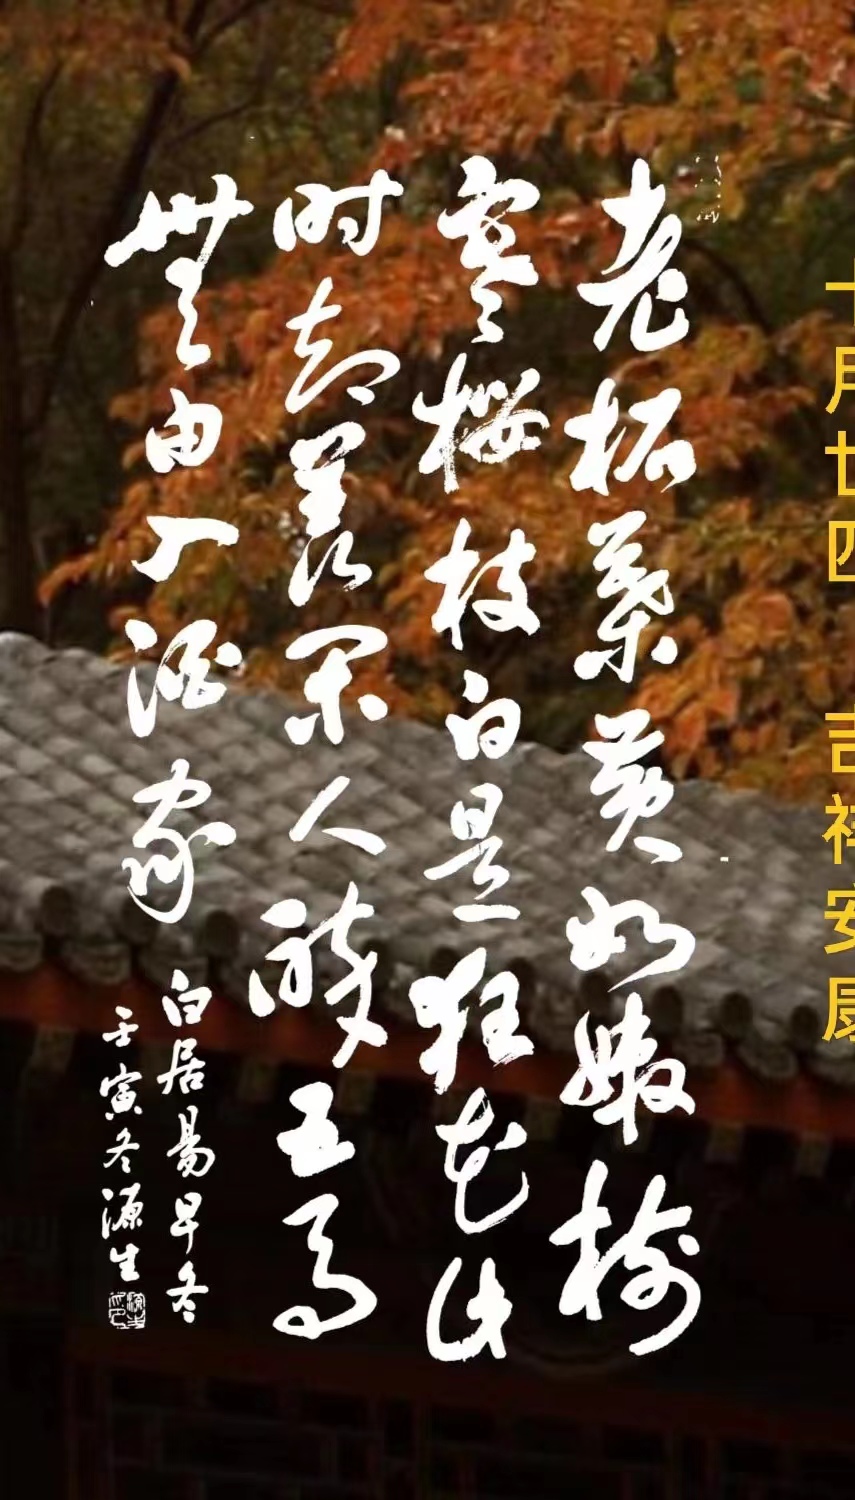 十月廿四 吉祥安康
老柘葉黄如嫩樹
寒櫻枝白是狂花此
时却羡閑人醉五马
無由入酒家
白居易早冬
壬寅冬源生